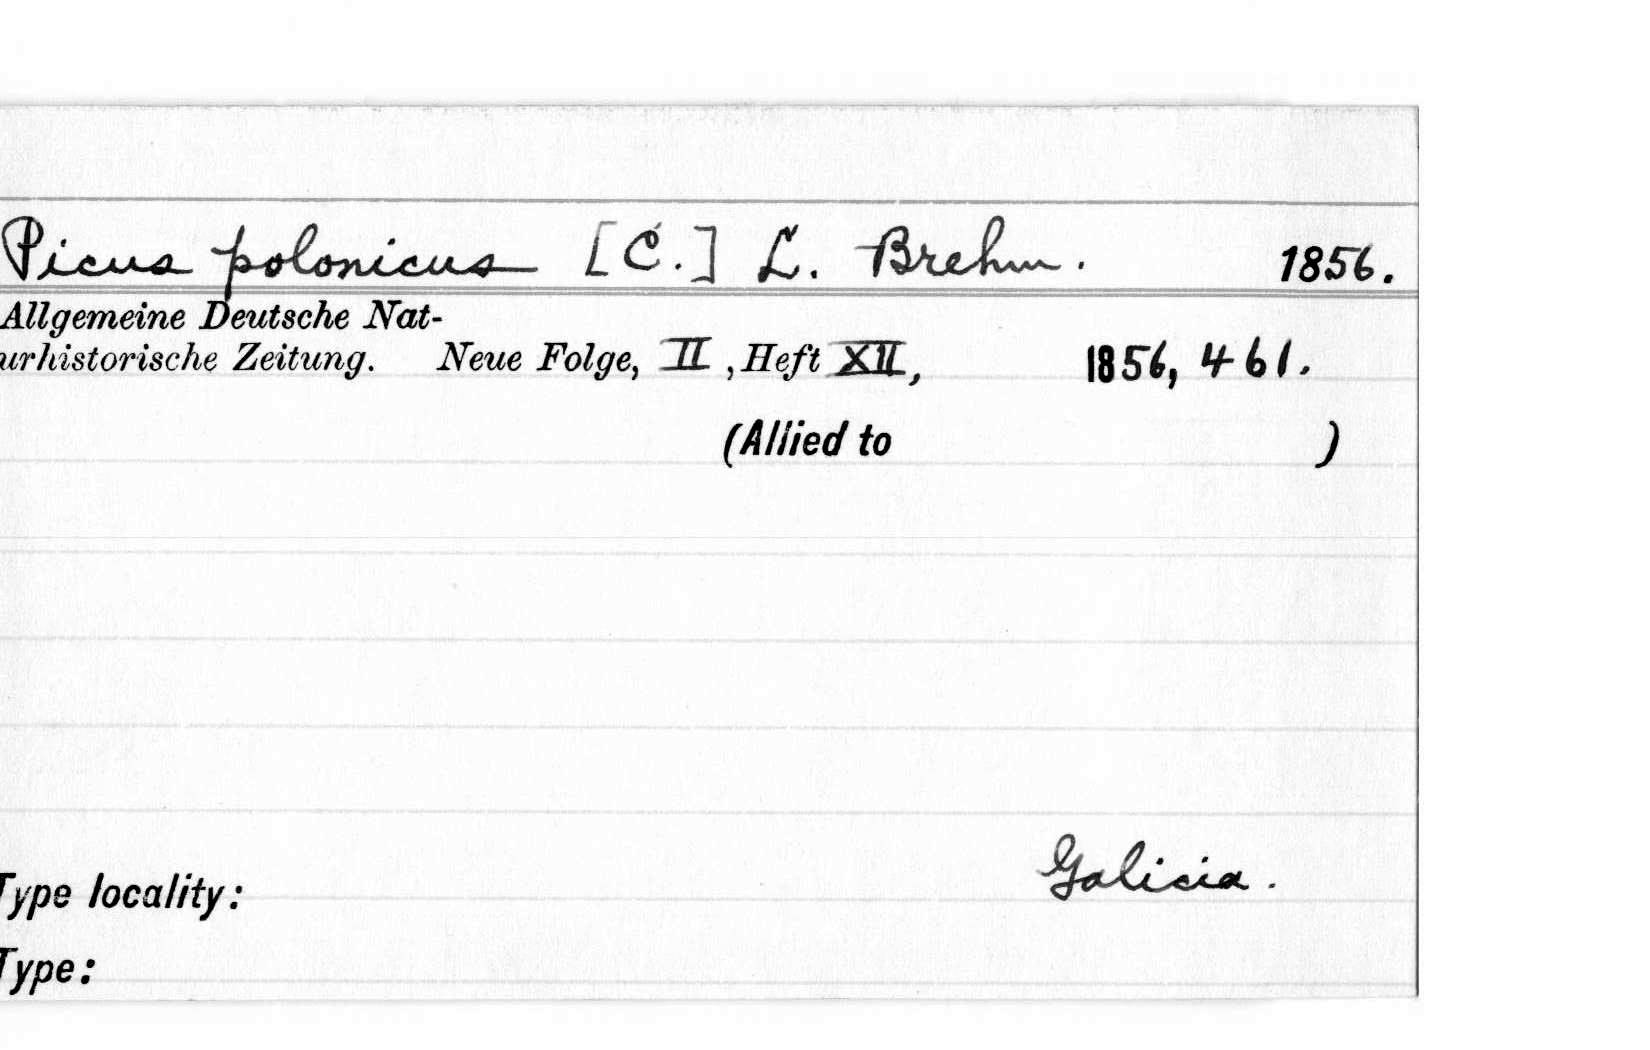 Picus polonicus [C.] L. Brehm. 1856.
Allgemeine Deutsche Nat-
urhistorische Zeitung. Neue Folge, II, Heft XII, 1856, 461.
(Allied to )
Galicia.
Type locality:
Type: